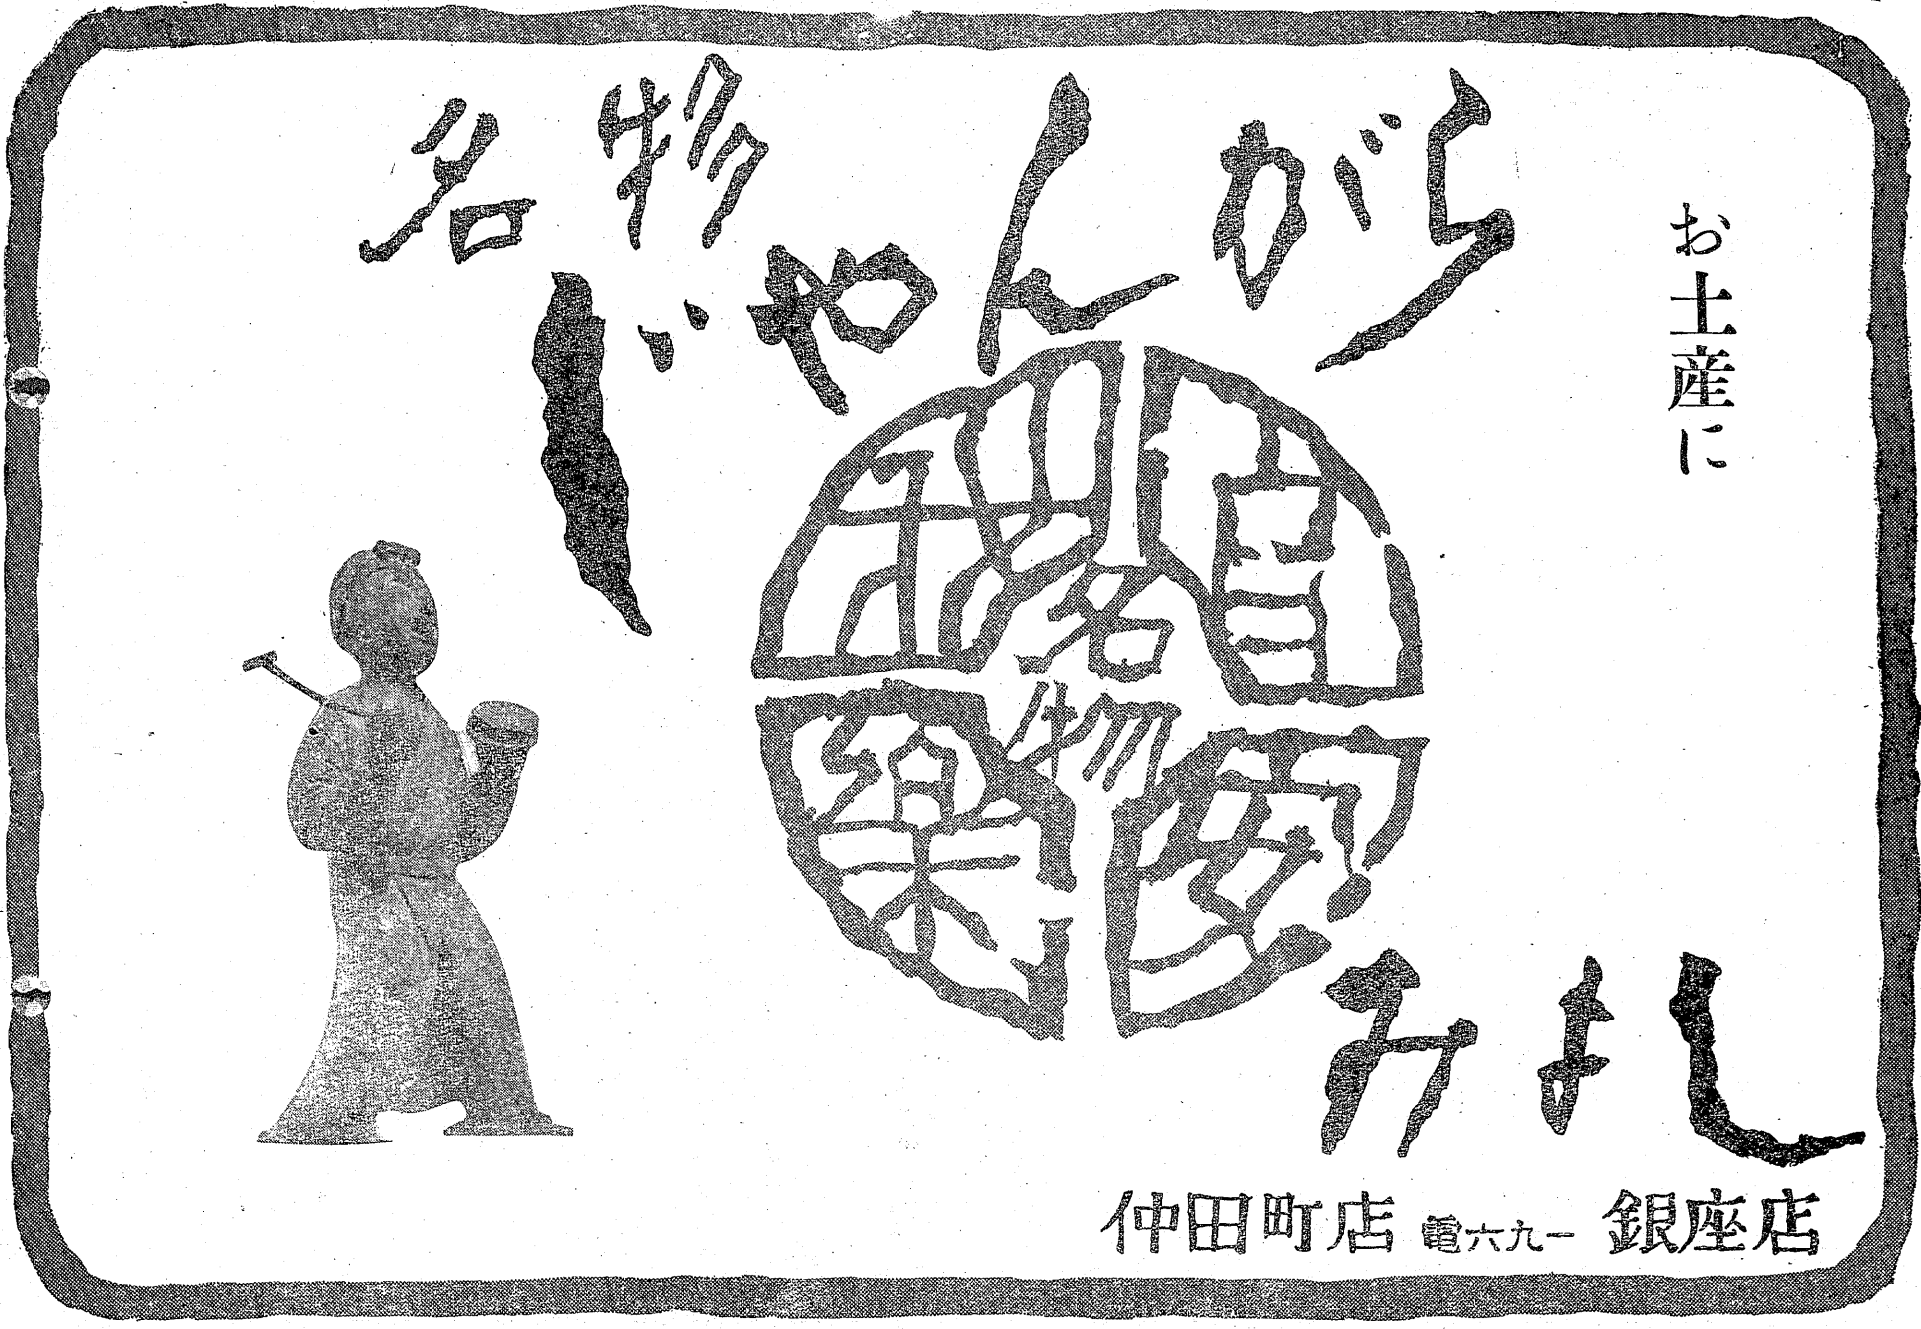 お土産に
名物
じやんがら
自安我樂
名物
みよし
仲田町店 電六九一 銀座店